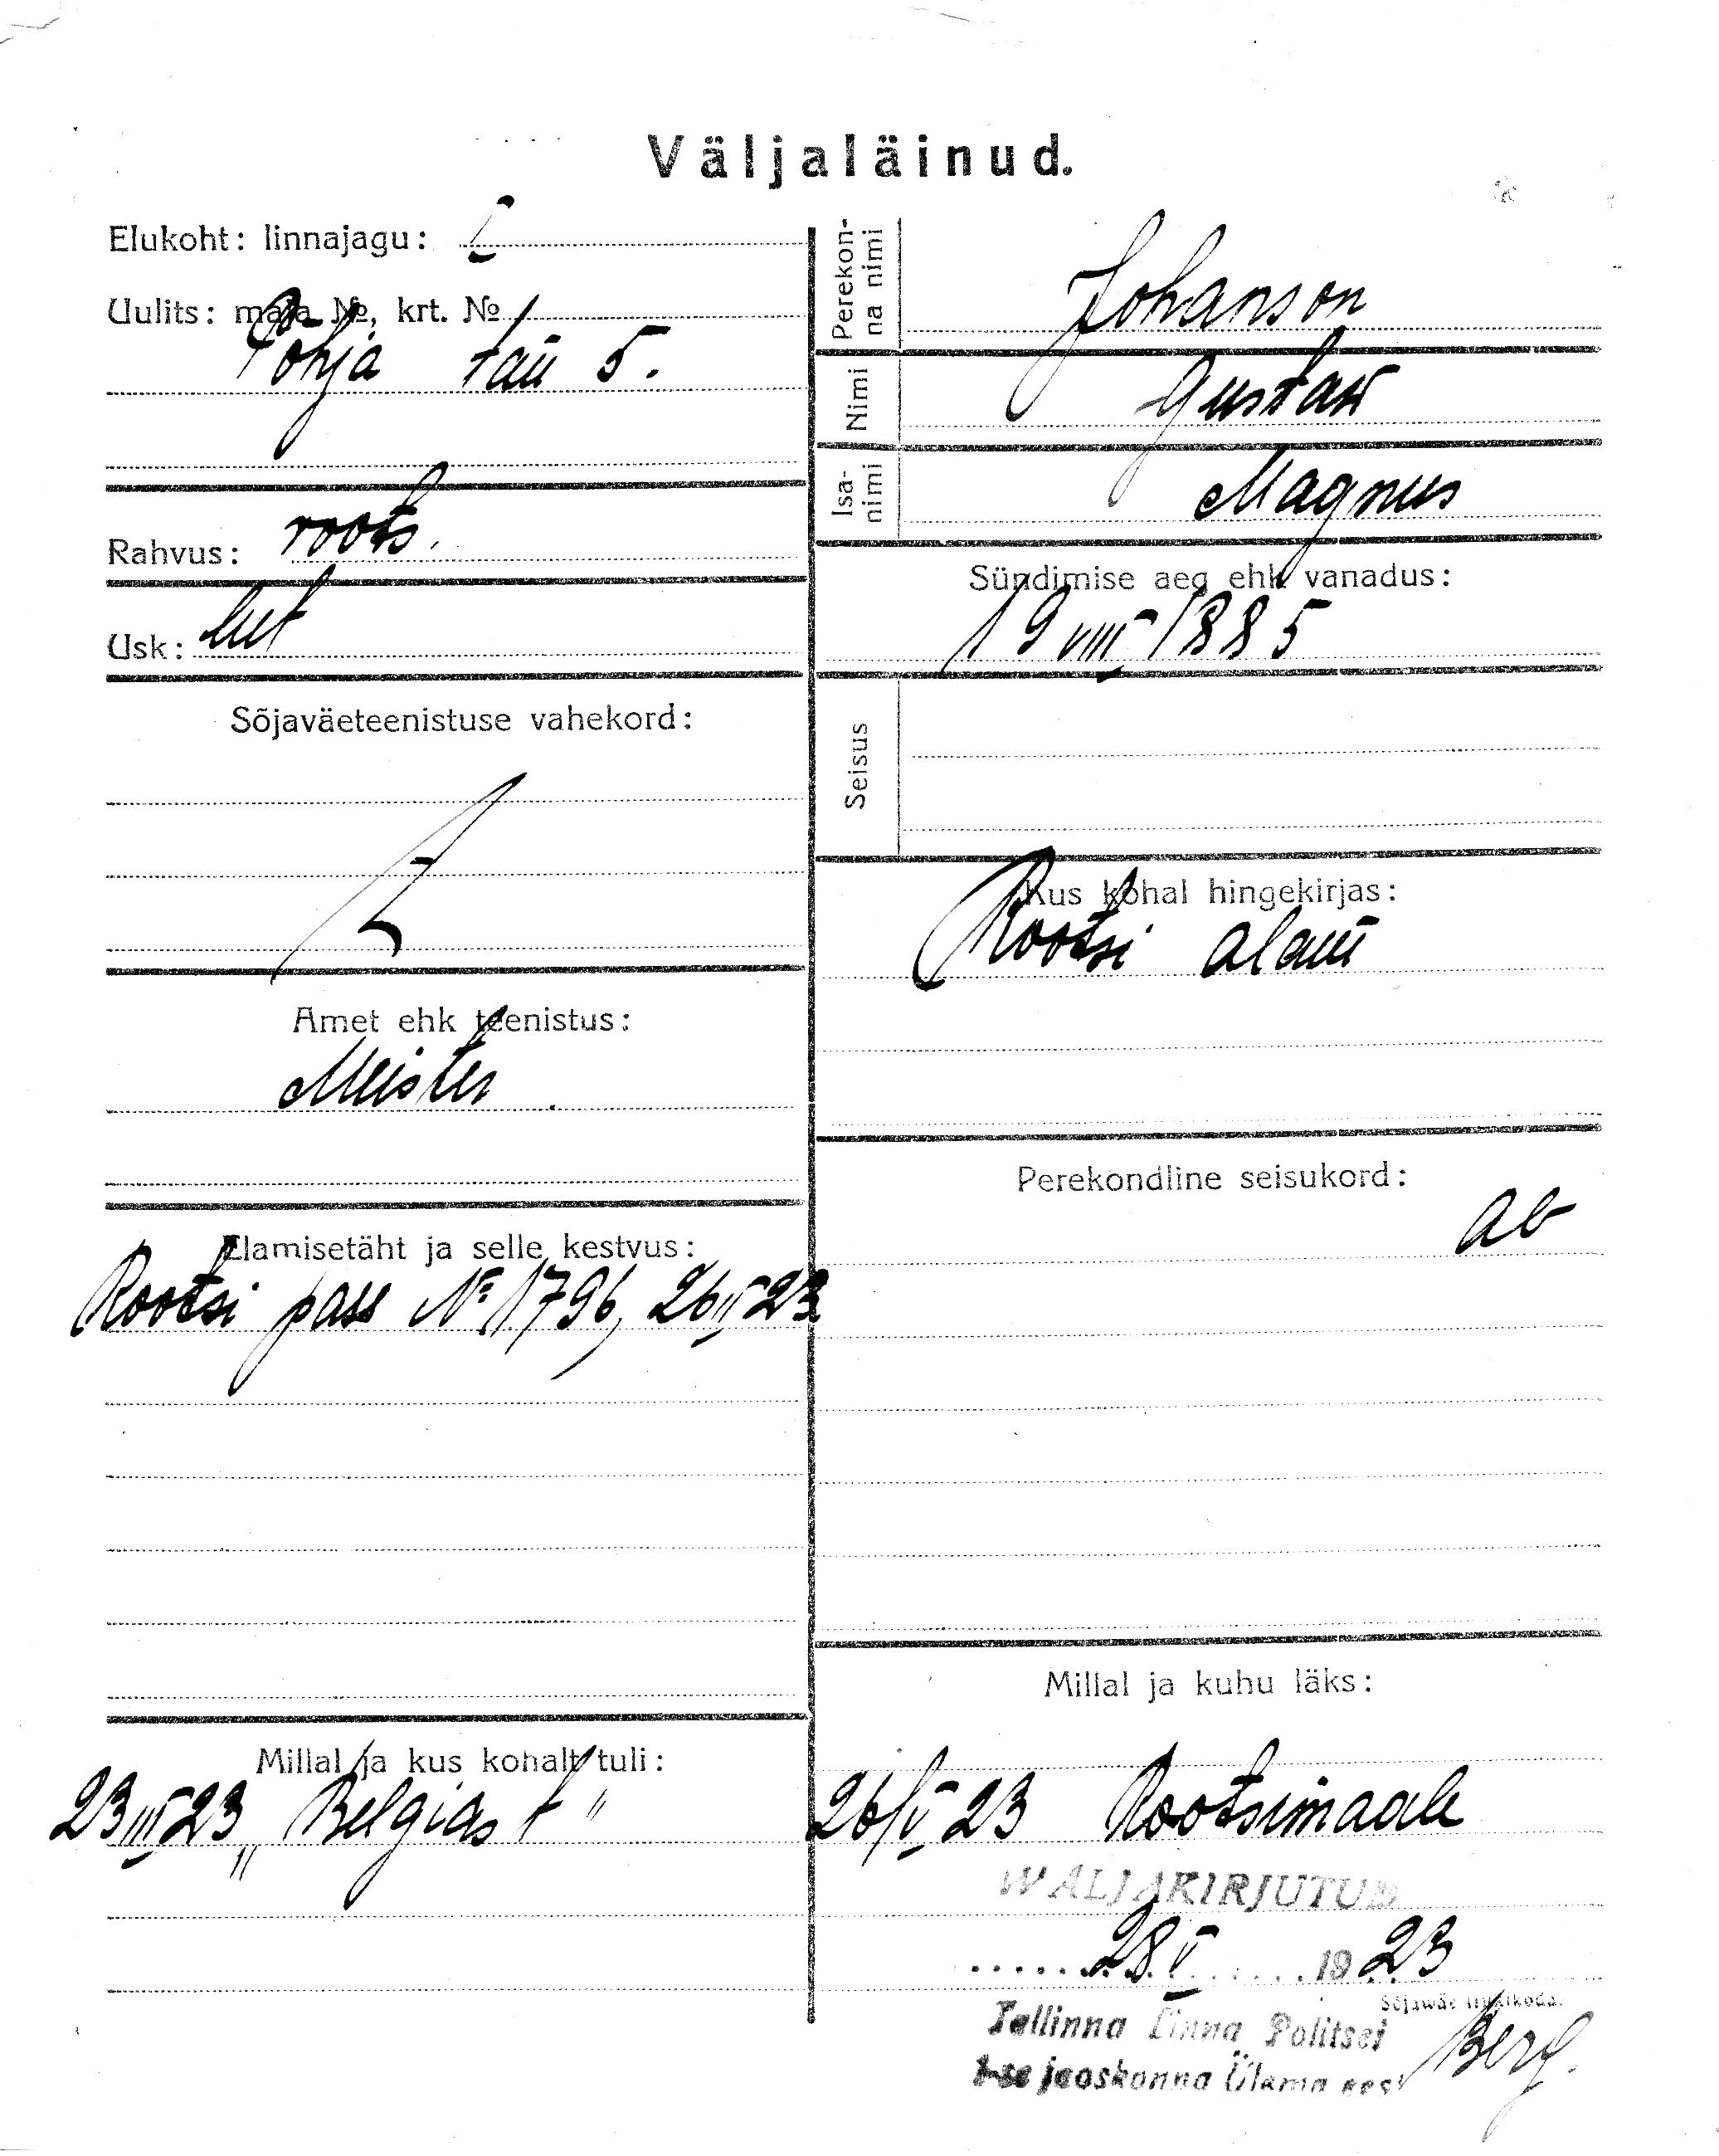 Väljaläinud.
Elukoht: linnajagu: I
Uulits: maja №, krt. №
Põhja tän 5.
Rahvus: roots.
Usk: lut
Sõjaväeteenistuse vahekord:
Amet ehk teenistus:
Meister
Elamisetäht ja selle kestvus:
Rootsi pass № 1796, 26 II 23
Millal ja kus kohalt tuli:
23 III 23 „Belgiast"
Perekonna nimi Johanson
Nimi Gustaw
Isanimi Magnus
Sündimise aeg ehk vanadus:
19 VIII 1885
Seisus
Kus kohal hingekirjas:
Rootsi alam
Perekondline seisukord:
ab
Millal ja kuhu läks:
26/V 23 Rootsimaale
WÄLJAKIRJUTUD
28 V 1923
Sõjawäe trükikoda.
Tallinna Linna Politsei
1-se jaoskonna Ülema eest Berg.